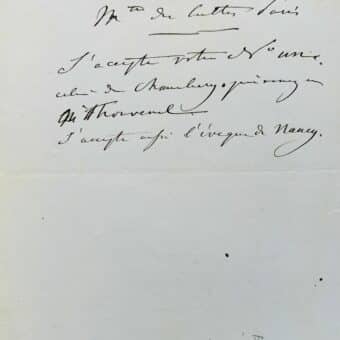 Mtre des cultes Paris
J'accepte votre No une
celui de Chambery, prévenez en
Mr Thouvenel.
J'accepte aussi l'évêque de Nancy.